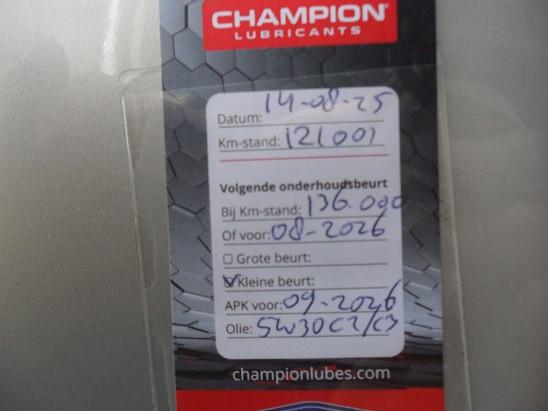 CHAMPION
LUBRICANTS
Datum: 14-08-25
Km-stand: 121001
Volgende onderhoudsbeurt
Bij Km-stand: 136.000
Of voor: 08-2026
Grote beurt:
Kleine beurt:
APK voor: 09-2026
Olie: 5W30C2/C3
championlubes.com